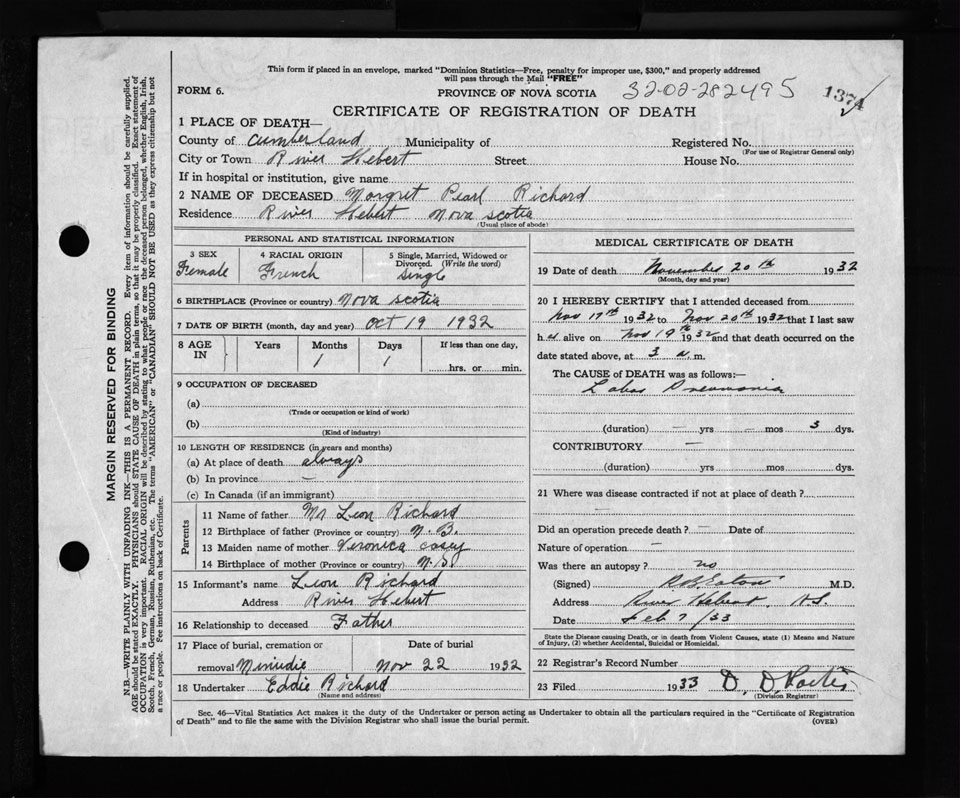 This form if placed in an envelope, marked "Dominion Statistics—Free, penalty for improper use, $300," and properly addressed
will pass through the Mail "FREE"
FORM 6.
PROVINCE OF NOVA SCOTIA
32-02-282495
1374
CERTIFICATE OF REGISTRATION OF DEATH
1 PLACE OF DEATH—
County of Cumberland Municipality of Registered No.
(For use of Registrar General only)
City or Town River Hebert Street House No.
If in hospital or institution, give name
2 NAME OF DECEASED Margret Pearl Richard
Residence River Hebert Nova Scotia
(Usual place of abode)
PERSONAL AND STATISTICAL INFORMATION
3 SEX
Female
4 RACIAL ORIGIN
French
5 Single, Married, Widowed or
Divorced. (Write the word)
Single
6 BIRTHPLACE (Province or country) Nova Scotia
7 DATE OF BIRTH (month, day and year) Oct 19 1932
8 AGE IN
Years Months Days If less than one day,
1 1 hrs. or min.
9 OCCUPATION OF DECEASED
(a)
(Trade or occupation or kind of work)
(b)
(Kind of industry)
10 LENGTH OF RESIDENCE (in years and months)
(a) At place of death always
(b) In province —
(c) In Canada (if an immigrant)
Parents
11 Name of father Mr Leon Richard
12 Birthplace of father (Province or country) N.B.
13 Maiden name of mother Veronica Cosey
14 Birthplace of mother (Province or country)
15 Informant's name Leon Richard
Address River Hebert
16 Relationship to deceased Father
17 Place of burial, cremation or Date of burial
removal Minudie Nov 22 1932
18 Undertaker Eddie Richard
(Name and address)
MEDICAL CERTIFICATE OF DEATH
19 Date of death November 20th 1932
(Month, day and year)
20 I HEREBY CERTIFY that I attended deceased from
Nov 17th 1932 to Nov 20th 1932 that I last saw
h alive on Nov 19th 1932 and that death occurred on the
date stated above, at 3 a.m.
The CAUSE of DEATH was as follows:—
Lobar Pneumonia
(duration) — yrs — mos 3 dys.
CONTRIBUTORY —
(duration) yrs. mos. dys.
21 Where was disease contracted if not at place of death?
Did an operation precede death? — Date of
Nature of operation —
Was there an autopsy? no
(Signed) Eaton M.D.
Address River Hebert, N.S.
Date Feb 7/33
State the Disease causing Death, or in death from Violent Causes, state (1) Means and Nature
of Injury, (2) whether Accidental, Suicidal or Homicidal.
22 Registrar's Record Number
23 Filed 1933 D. D. Porter
(Division Registrar)
Sec. 46—Vital Statistics Act makes it the duty of the Undertaker or person acting as Undertaker to obtain all the particulars required in the "Certificate of Registration
of Death" and to file the same with the Division Registrar who shall issue the burial permit.
(OVER)
MARGIN RESERVED FOR BINDING
N.B.—WRITE PLAINLY WITH UNFADING INK—THIS IS A PERMANENT RECORD. Every item of information should be carefully supplied.
AGE should be stated EXACTLY. PHYSICIANS should STATE CAUSE OF DEATH in plain terms, so that it may be properly classified. Exact statement of
OCCUPATION is very important. RACIAL ORIGIN will be described by stating to what people or race the deceased person belonged, whether English, Irish,
Scotch, French, German, Russian, Ruthenian, etc. The terms "AMERICAN" or "CANADIAN" SHOULD NOT BE USED as they express citizenship but not
a race or people. See instructions on back of Certificate.